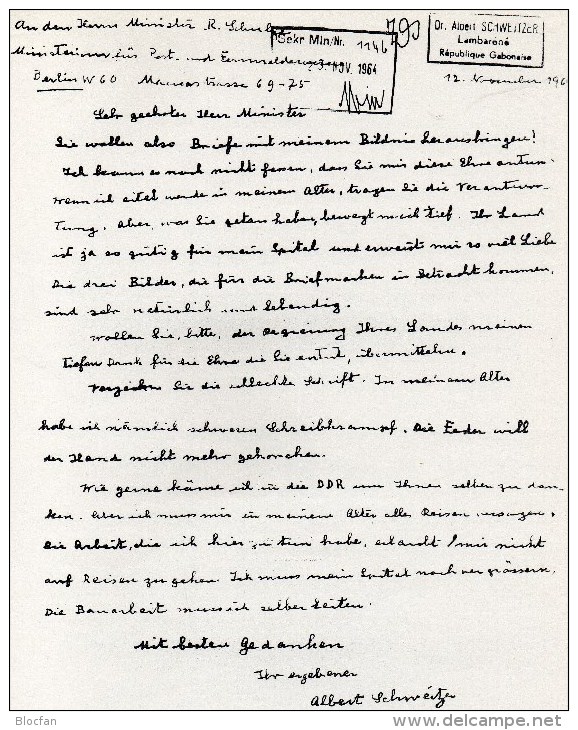 An den Herrn Minister R. Schulze
Ministerium für Post- und Fernmeldewesen
Berlin W 60 Mauerstrasse 69-75
Sekr Min/Nr. 1146
NOV. 1964
Dr. Albert SCHWEITZER
Lambaréné
République Gabonaise
12. November 196
Sehr geehrter Herr Minister
Sie wollen also Briefe mit meinem Bildnis herausbringen!
Ich kann es noch nicht fassen, dass Sie mir diese Ehre antun.
Wenn ich eitel werde in meinem Alter, tragen Sie die Verantwor-
tung. Aber, was Sie getan haben, bewegt mich tief. Ihr Land
ist ja so gütig für mein Spital und erweist mir so viel Liebe
Die drei Bilder, die für die Briefmarken in Betracht kommen,
sind sehr natürlich und lebendig.
Wollen Sie, bitte, der Regierung Ihres Landes meinen
tiefen Dank für die Ehre die Sie mir antut, übermitteln.
Verzeihen Sie die schlechte Schrift. In meinem Alter
habe ich nämlich schweren Schreibkrampf. Die Feder will
der Hand nicht mehr gehorchen.
Wie gerne käme ich in die DDR um Ihnen selber zu dan-
ken. Aber ich muss mir in meinem Alter alles Reisen versagen.
Die Arbeit, die ich hier zu tun habe, erlaubt mir nicht
auf Reisen zu gehen. Ich muss mein Spital noch vergrössern.
Die Bauarbeit muss ich selber leiten.
Mit besten Gedanken
Ihr ergebener
Albert Schweitzer
Blocfan
www.delcampe.net